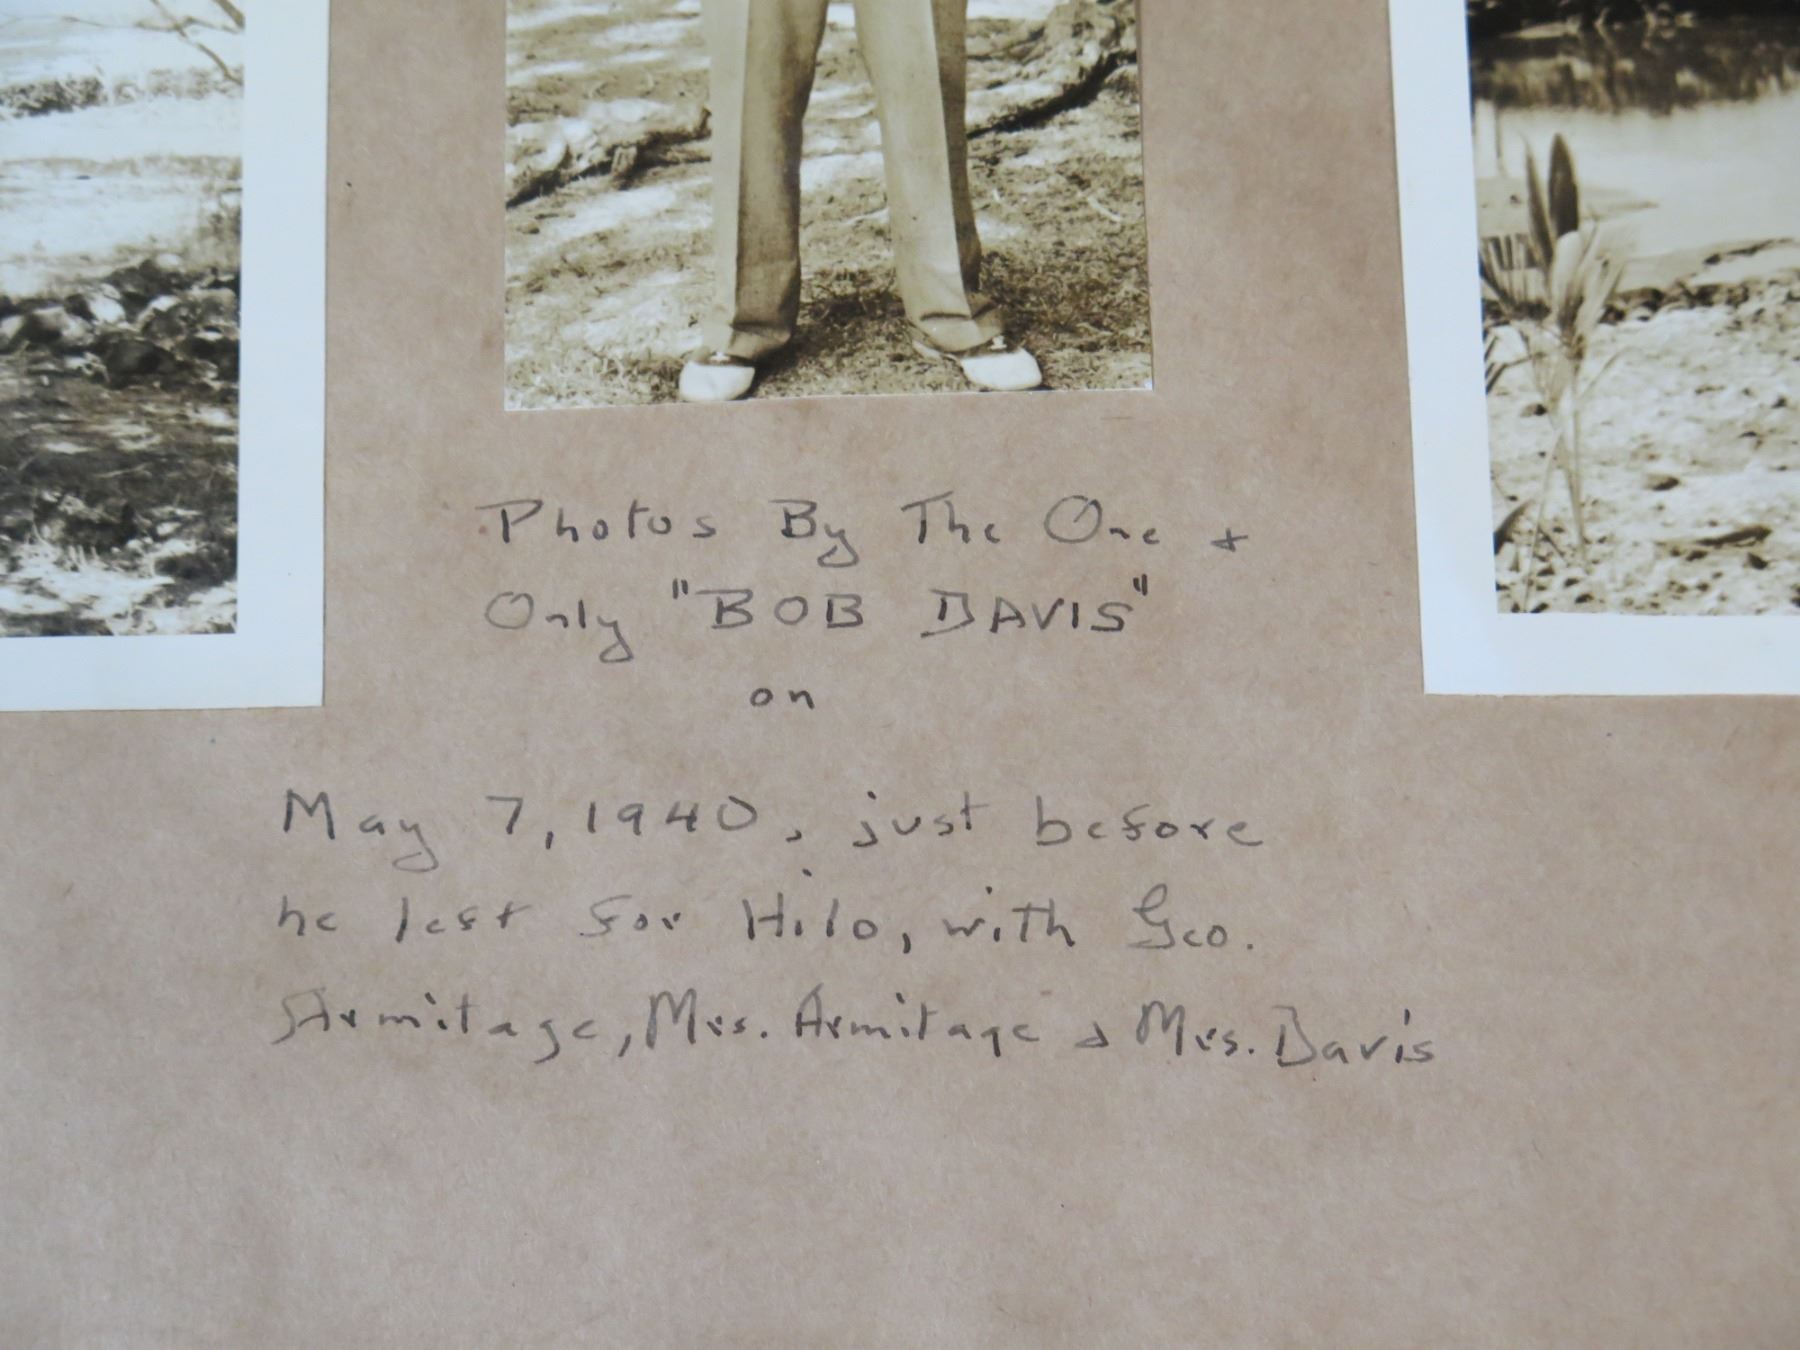 Photos By The One +
Only "BOB DAVIS"
on
May 7, 1940, just before
he left for Hilo, with Geo.
Armitage, Mrs. Armitage & Mrs. Davis